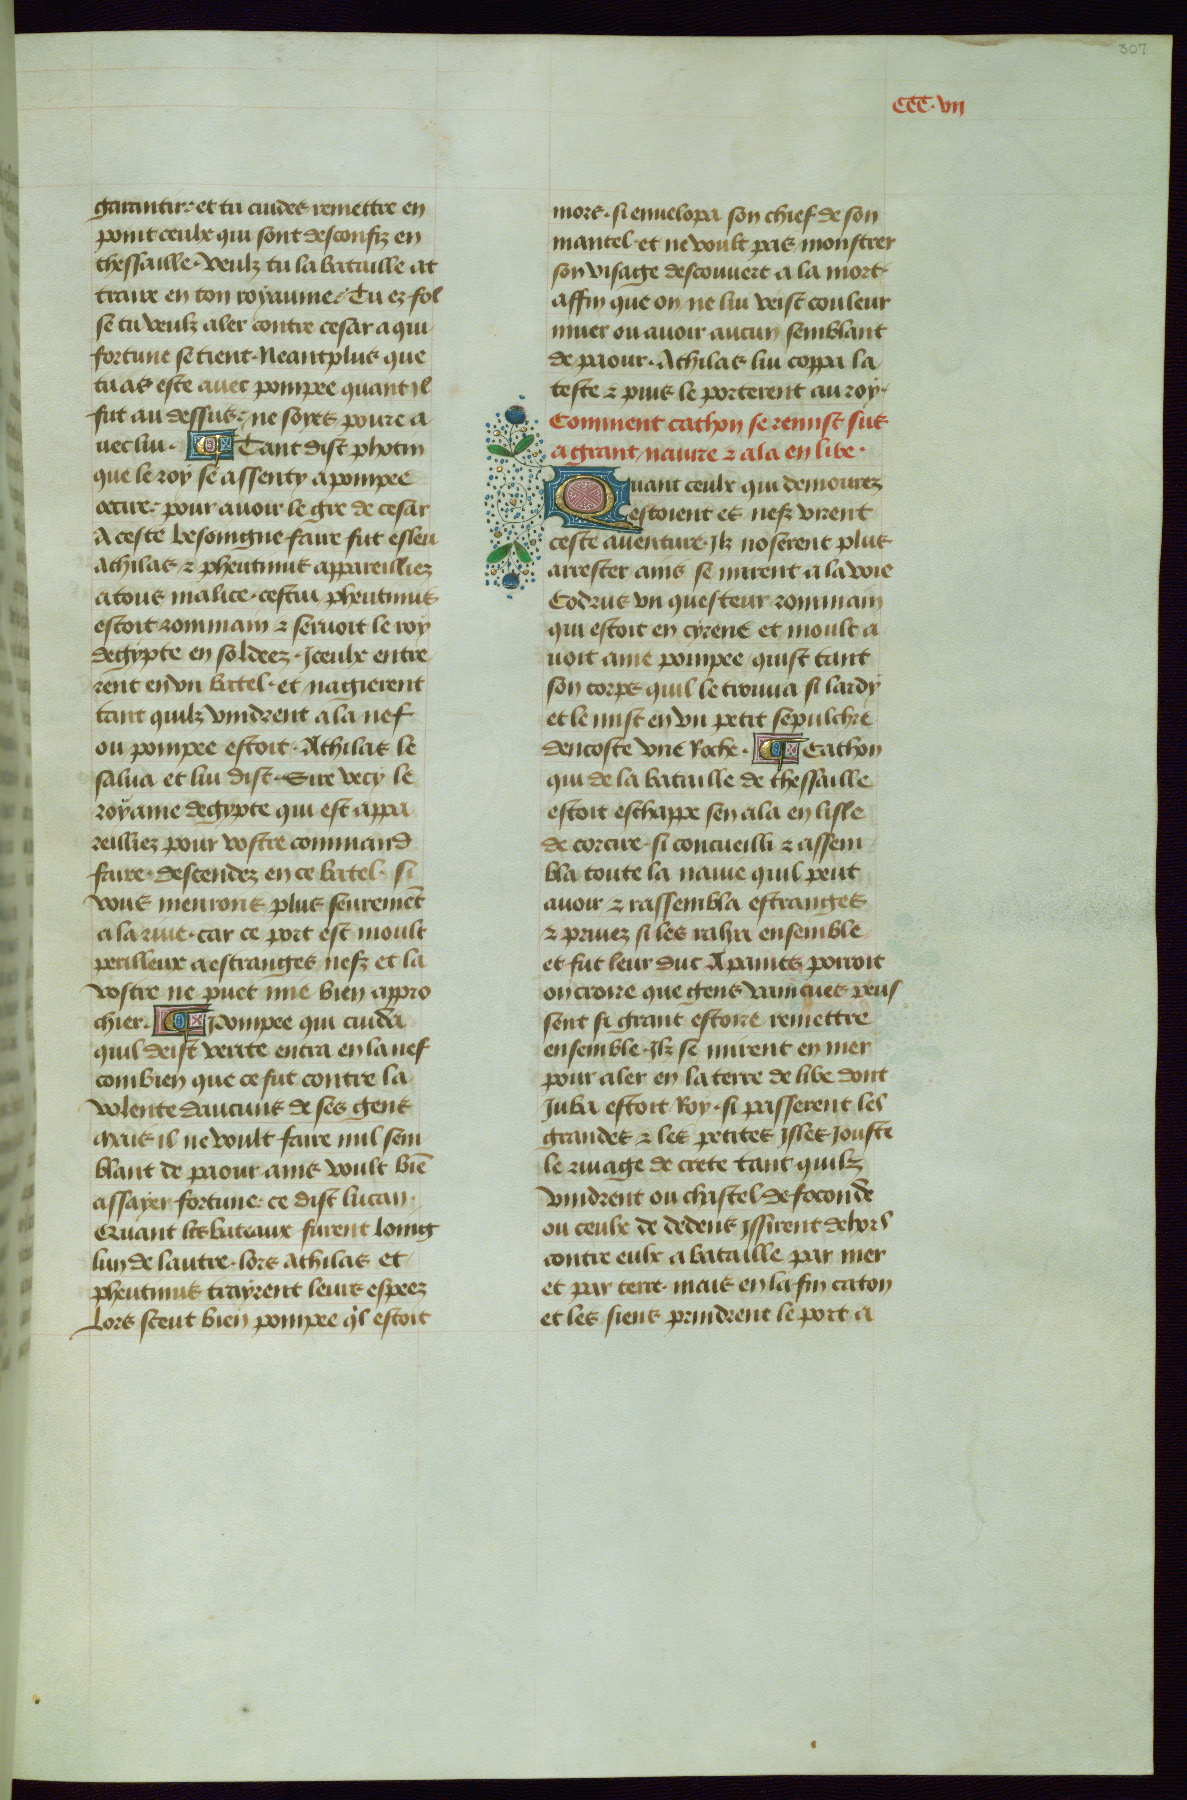 307
CCC·vii
garantir· et tu cuides remettre en
point ceulx qui sont desconfiz en
thessaille· veulz tu la bataille at
traire en ton royaume· Tu ez fol
se tu veulz aler contre cesar a qui
fortune se tient· Neantplus que
tu as este auec pompee quant il
fut au dessus· ne soyes poure a
uec lui· Tant dist photin
que le roy se assenty a pompee
occire· pour auoir le gre de cesar
A ceste besoingne faire fut esleu
achilas ⁊ pheutinus appareilliez
a tous malice· cestui pheutinus
estoit rommain ⁊ seruoit le roy
degypte en soldeez· Iceulx entre
rent en vn batel· et nagierent
tant quilz vindrent a la nef
ou pompee estoit· Athilas le
salua et lui dist· Sire vecy le
royame degypte qui est appa
reilliez pour vostre command
faire· descendez en ce batel· si
vous menrons plus seuremēt
a la riue· car ce port est moult
perilleux a estranges nefz et la
vostre ne puet mie bien appro
chier· Pompee qui cuida
quil deist verite entra en la nef
combien que ce fut contre la
volente daucuns de ses gens
Mais il ne voult faire nul sem
blant de paour ains voult biē
assayer fortune· ce dist lucan·
Quant les bateaux furent loing
lun de lautre· lors athilas et
pheutinus trayrent leurs espeez
Lors sceut bien pompee q̉l estoit
mors· si enuelopa son chief de son
mantel· et ne voult pas monstrer
son visage descouuert a la mort·
affin que on ne lui veist couleur
muer ou auoir aucun semblant
de paour· Athilas lui coppa la
teste ⁊ puis le porterent au roy·
Comment cathon se remist sus
a grant nauire ⁊ ala en libe·
Quant ceulx qui demourez
estoient es nefz virent
ceste auenture· Ilz noserent plus
arrester ains se mirent a la voie
Codrus vn questeur rommain
qui estoit en cyrene et moult a
uoit ame pompee quist tant
son corps quil le trouua si lardy
et le mist en vn petit sepulchre
dencoste vne Roche· Cathon
qui de la bataille de thessaille
estoit eschappe sen ala en lisle
de corcire· si concueilli ⁊ assem
bla toute la nauie quil peut
auoir ⁊ rassembla estranges
⁊ priuez si les ralya ensemble
et fut leur duc A paines porroit
on croire que gens vaincues peus
sent si grant estoire remettre
ensemble· Ilz se mirent en mer
pour aler en la terre de libe dont
Juba estoit Roy· si passerent les
grandes ⁊ les petites isles Jouste
le riuage de crete tant quilz
vindrent ou chastel de foconde
ou ceulx de dedens issirent dehors
contre eulx a bataille par mer
et par terre· mais en la fin caton
et les siens prindrent le port a